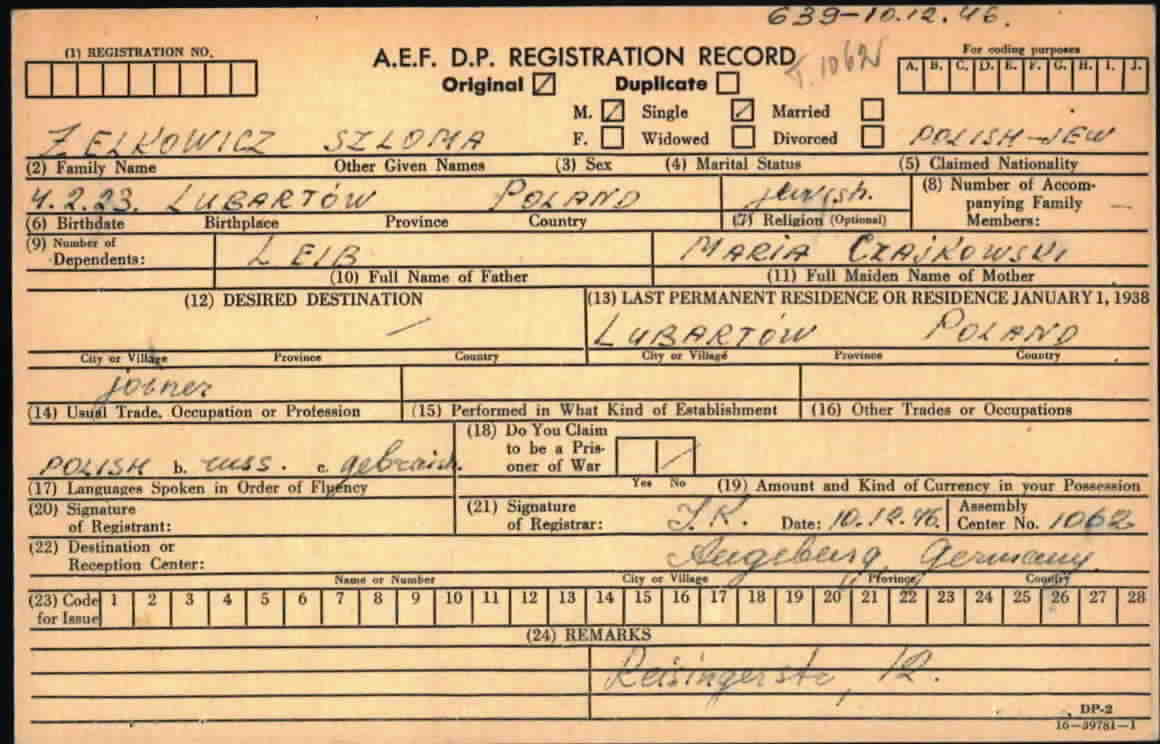 639-10.12.46.
(1) REGISTRATION NO.
A.E.F. D.P. REGISTRATION RECORD
T. 1062
For coding purposes
A. B. C. D. E. F. G. H. I. J.
Original Duplicate
M. Single Married
F. Widowed Divorced
ZELKOWICZ SZLOMA POLISH-JEW
(2) Family Name Other Given Names (3) Sex (4) Marital Status (5) Claimed Nationality
4.2.23. LUBARTÓW POLAND jewish.
(8) Number of Accompanying Family Members: —
(6) Birthdate Birthplace Province Country (7) Religion (Optional)
(9) Number of Dependents:
LEIB MARIA CZAJKOWSKI
(10) Full Name of Father (11) Full Maiden Name of Mother
(12) DESIRED DESTINATION (13) LAST PERMANENT RESIDENCE OR RESIDENCE JANUARY 1, 1938
— LUBARTÓW POLAND
City or Village Province Country City or Village Province Country
joiner
(14) Usual Trade, Occupation or Profession (15) Performed in What Kind of Establishment (16) Other Trades or Occupations
POLISH b. russ. c. gebraish.
(18) Do You Claim to be a Prisoner of War
Yes No
(17) Languages Spoken in Order of Fluency (19) Amount and Kind of Currency in your Possession
(20) Signature of Registrant:
(21) Signature of Registrar: J.K. Date: 10.12.46. Assembly Center No. 1062
(22) Destination or Reception Center: Augsburg, Germany.
Name or Number City or Village Province Country
(23) Code for Issue 1 2 3 4 5 6 7 8 9 10 11 12 13 14 15 16 17 18 19 20 21 22 23 24 25 26 27 28
(24) REMARKS
Reisingerstr, 12.
DP-2
16-39781-1